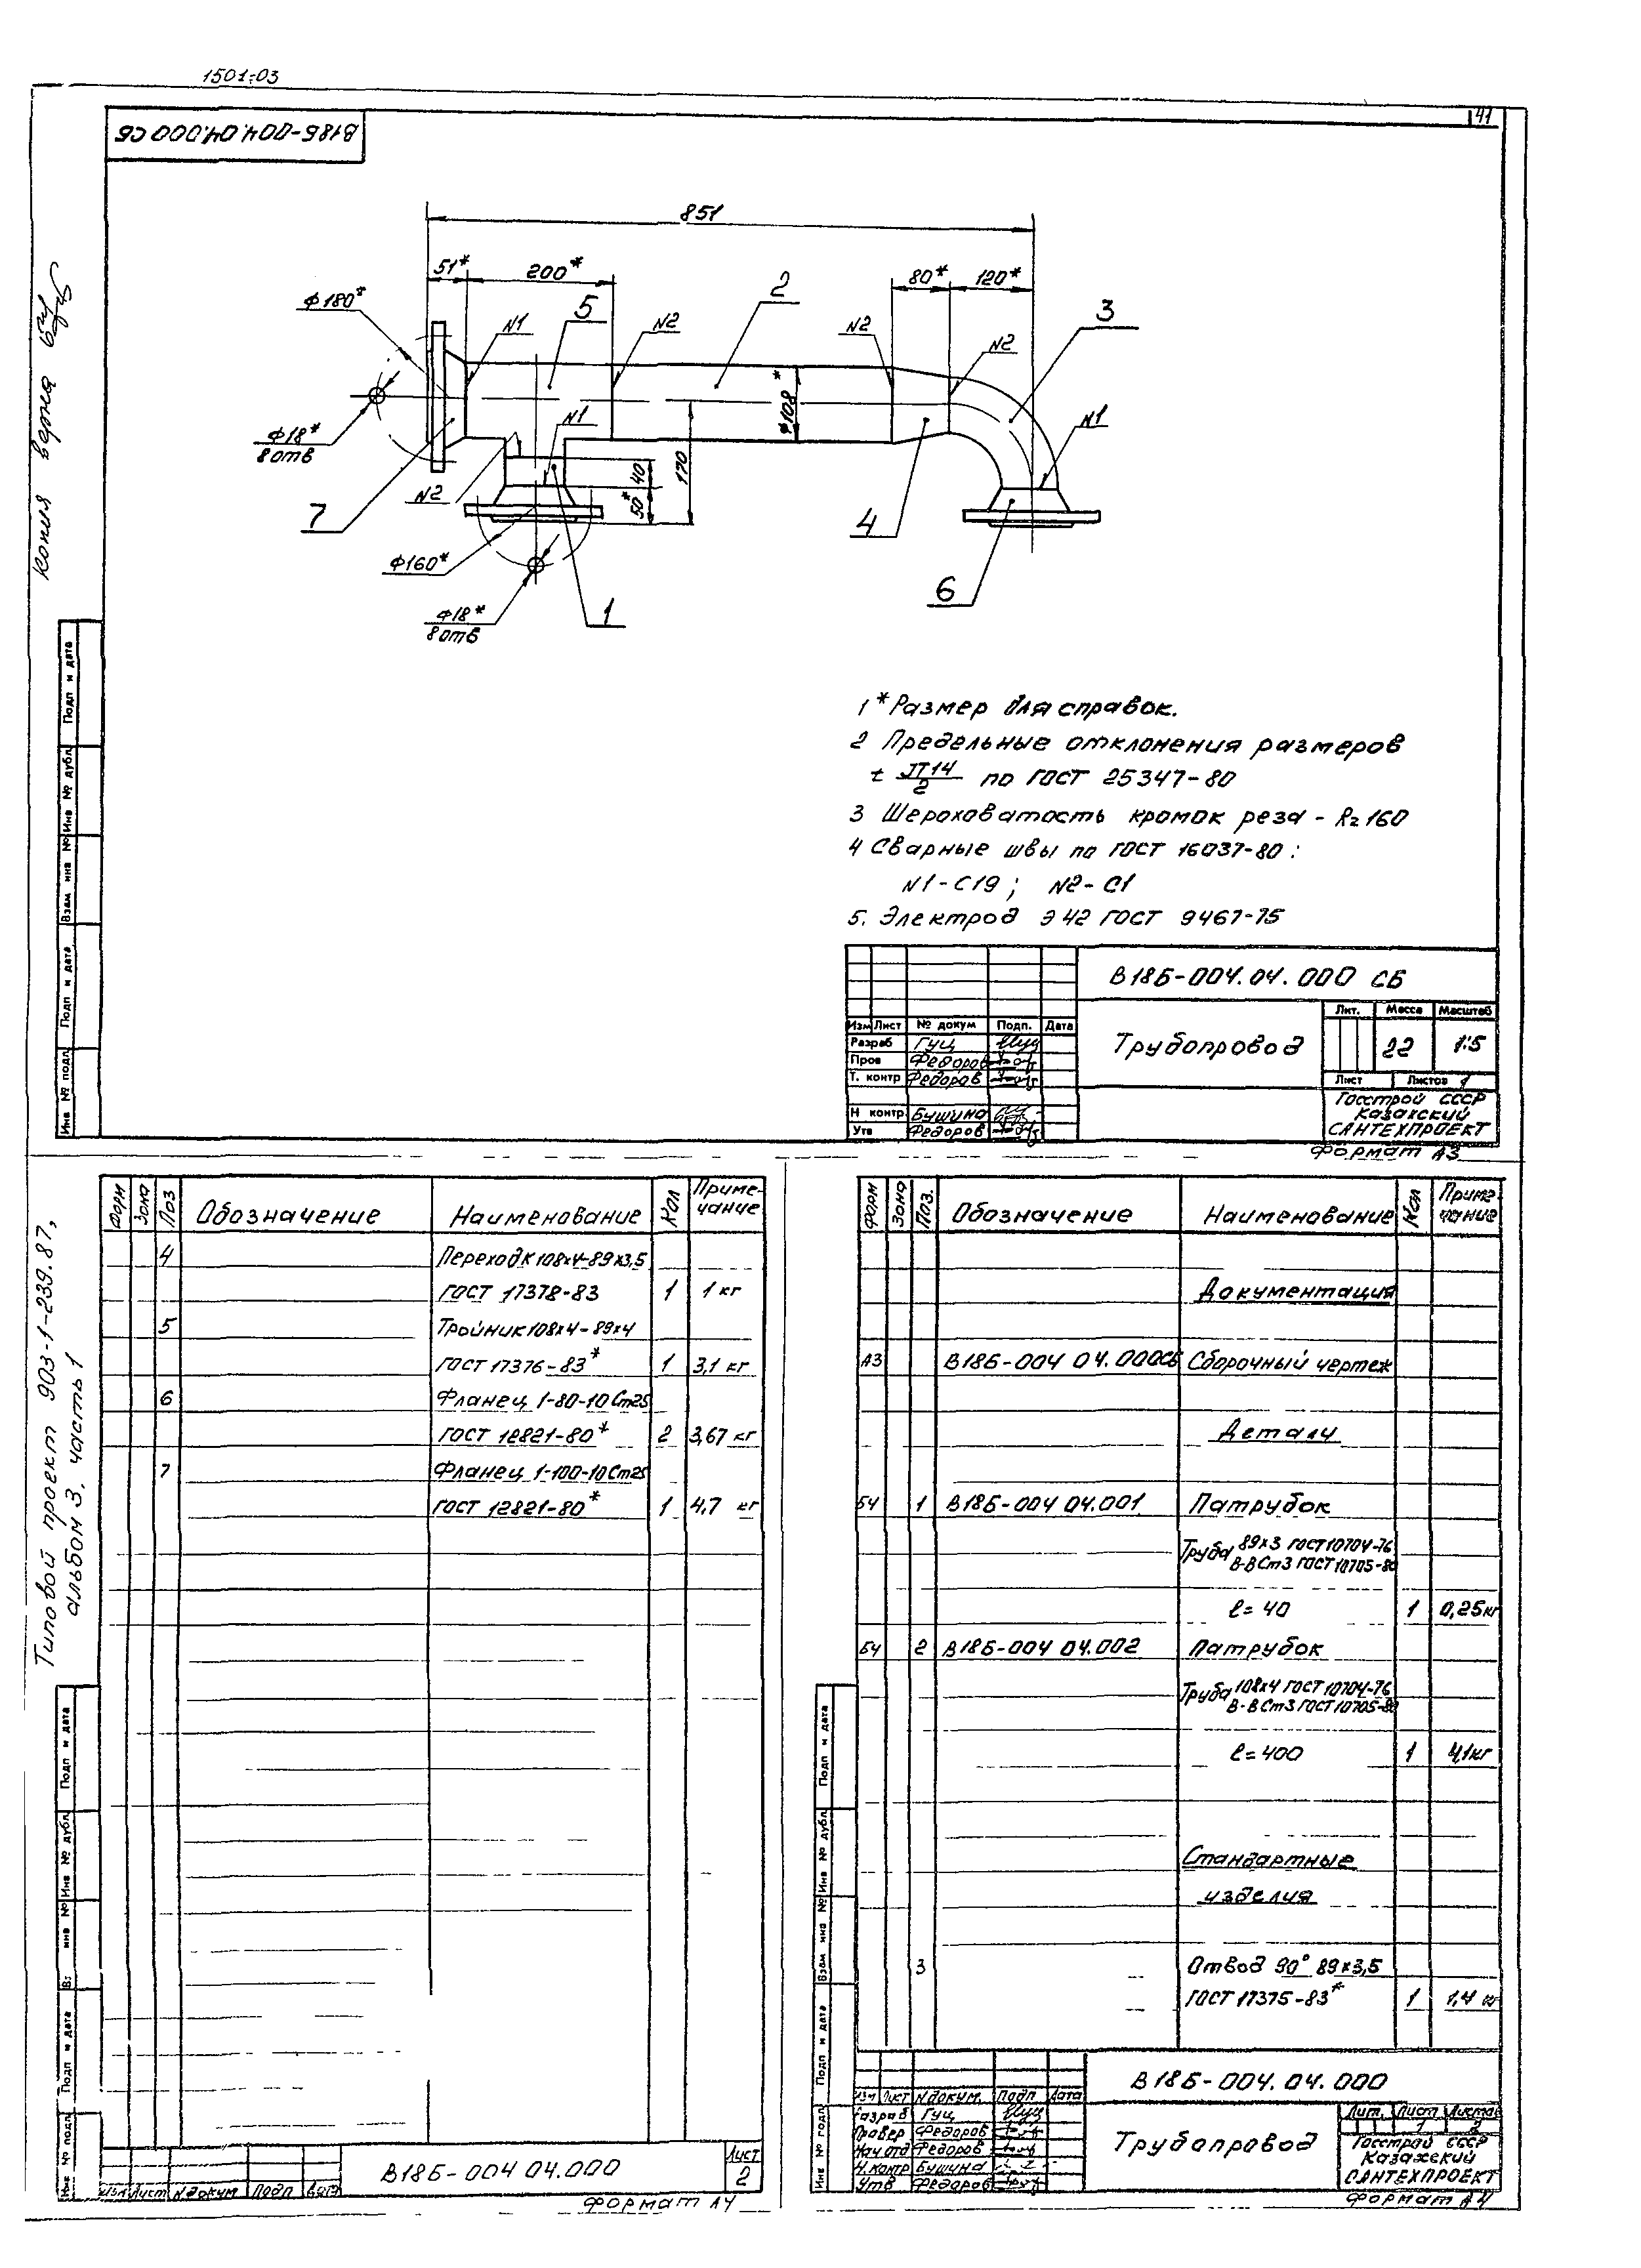 1501-03
41
В18Б-004.04.000 СБ
851
51*
200*
80*
120*
ф180*
N1
5
N2
2
N2
N2
3
ф18*
8 отв
ф108*
N1
N1
170
40
50*
N2
7
4
ф160*
6
ф18*
8 отв
1
копия верна
1 * Размер для справок.
2 Предельные отклонения размеров
± JT14/2 по ГОСТ 25347-80
3 Шероховатость кромок реза - Rz 160
4 Сварные швы по ГОСТ 16037-80:
N1-С19; N2-С1
5. Электрод Э42 ГОСТ 9467-75
В18Б-004.04.000 СБ
Изм Лист № докум Подп. Дата
Разраб Гуц
Пров Федоров
Т. контр Федоров
Н контр. Бушина
Утв Федоров
Трубопровод
Лит. Масса Масштаб
22 1:5
Лист Листов 1
Госстрой СССР
Казахский
САНТЕХПРОЕКТ
Формат А3
Подп и дата
Инв № дубл
Взам инв №
Подп и дата
Инв № подл
Типовой проект 903-1-239.87,
альбом 3, часть 1
Форм Зона Поз Обозначение Наименование Кол Приме-
чание
4 Переход К 108х4-89х3,5
ГОСТ 17378-83 1 1 кг
5 Тройник 108х4-89х4
ГОСТ 17376-83* 1 3,1 кг
6 Фланец 1-80-10 Ст25
ГОСТ 12821-80* 2 3,67 кг
7 Фланец 1-100-10 Ст25
ГОСТ 12821-80* 1 4,7 кг
Подп и дата
Инв № дубл
инв №
Подп и дата
Инв № подл
Изм Лист N докум Подп Дата
В18Б-004 04.000
Лист
2
Формат А4
Форм Зона Поз. Обозначение Наименование Кол Приме-
чание
Документация
А3 В18Б-004 04.000СБ Сборочный чертеж
Детали
БЧ 1 В18Б-004 04.001 Патрубок
Труба 89х3 ГОСТ 10704-76
В-В Ст3 ГОСТ 10705-80
ℓ=40 1 0,25кг
БЧ 2 В18Б-004 04.002 Патрубок
Труба 108х4 ГОСТ 10704-76
В-В Ст3 ГОСТ 10705-80
ℓ=400 1 4,1кг
Стандартные
изделия
3 Отвод 90° 89х3,5
ГОСТ 17375-83* 1 1,4 кг
Подп и дата
Инв № дубл
Взам инв №
Подп и дата
Инв № подл
В18Б-004.04.000
Изм Лист N докум. Подп Дата
Разраб Гуц
Провер Федоров
Нач отд Федоров
Н. контр Бушина
Утв Федоров
Трубопровод
Лит. Лист Листов
1 2
Госстрой СССР
Казахский
САНТЕХПРОЕКТ
Формат А4